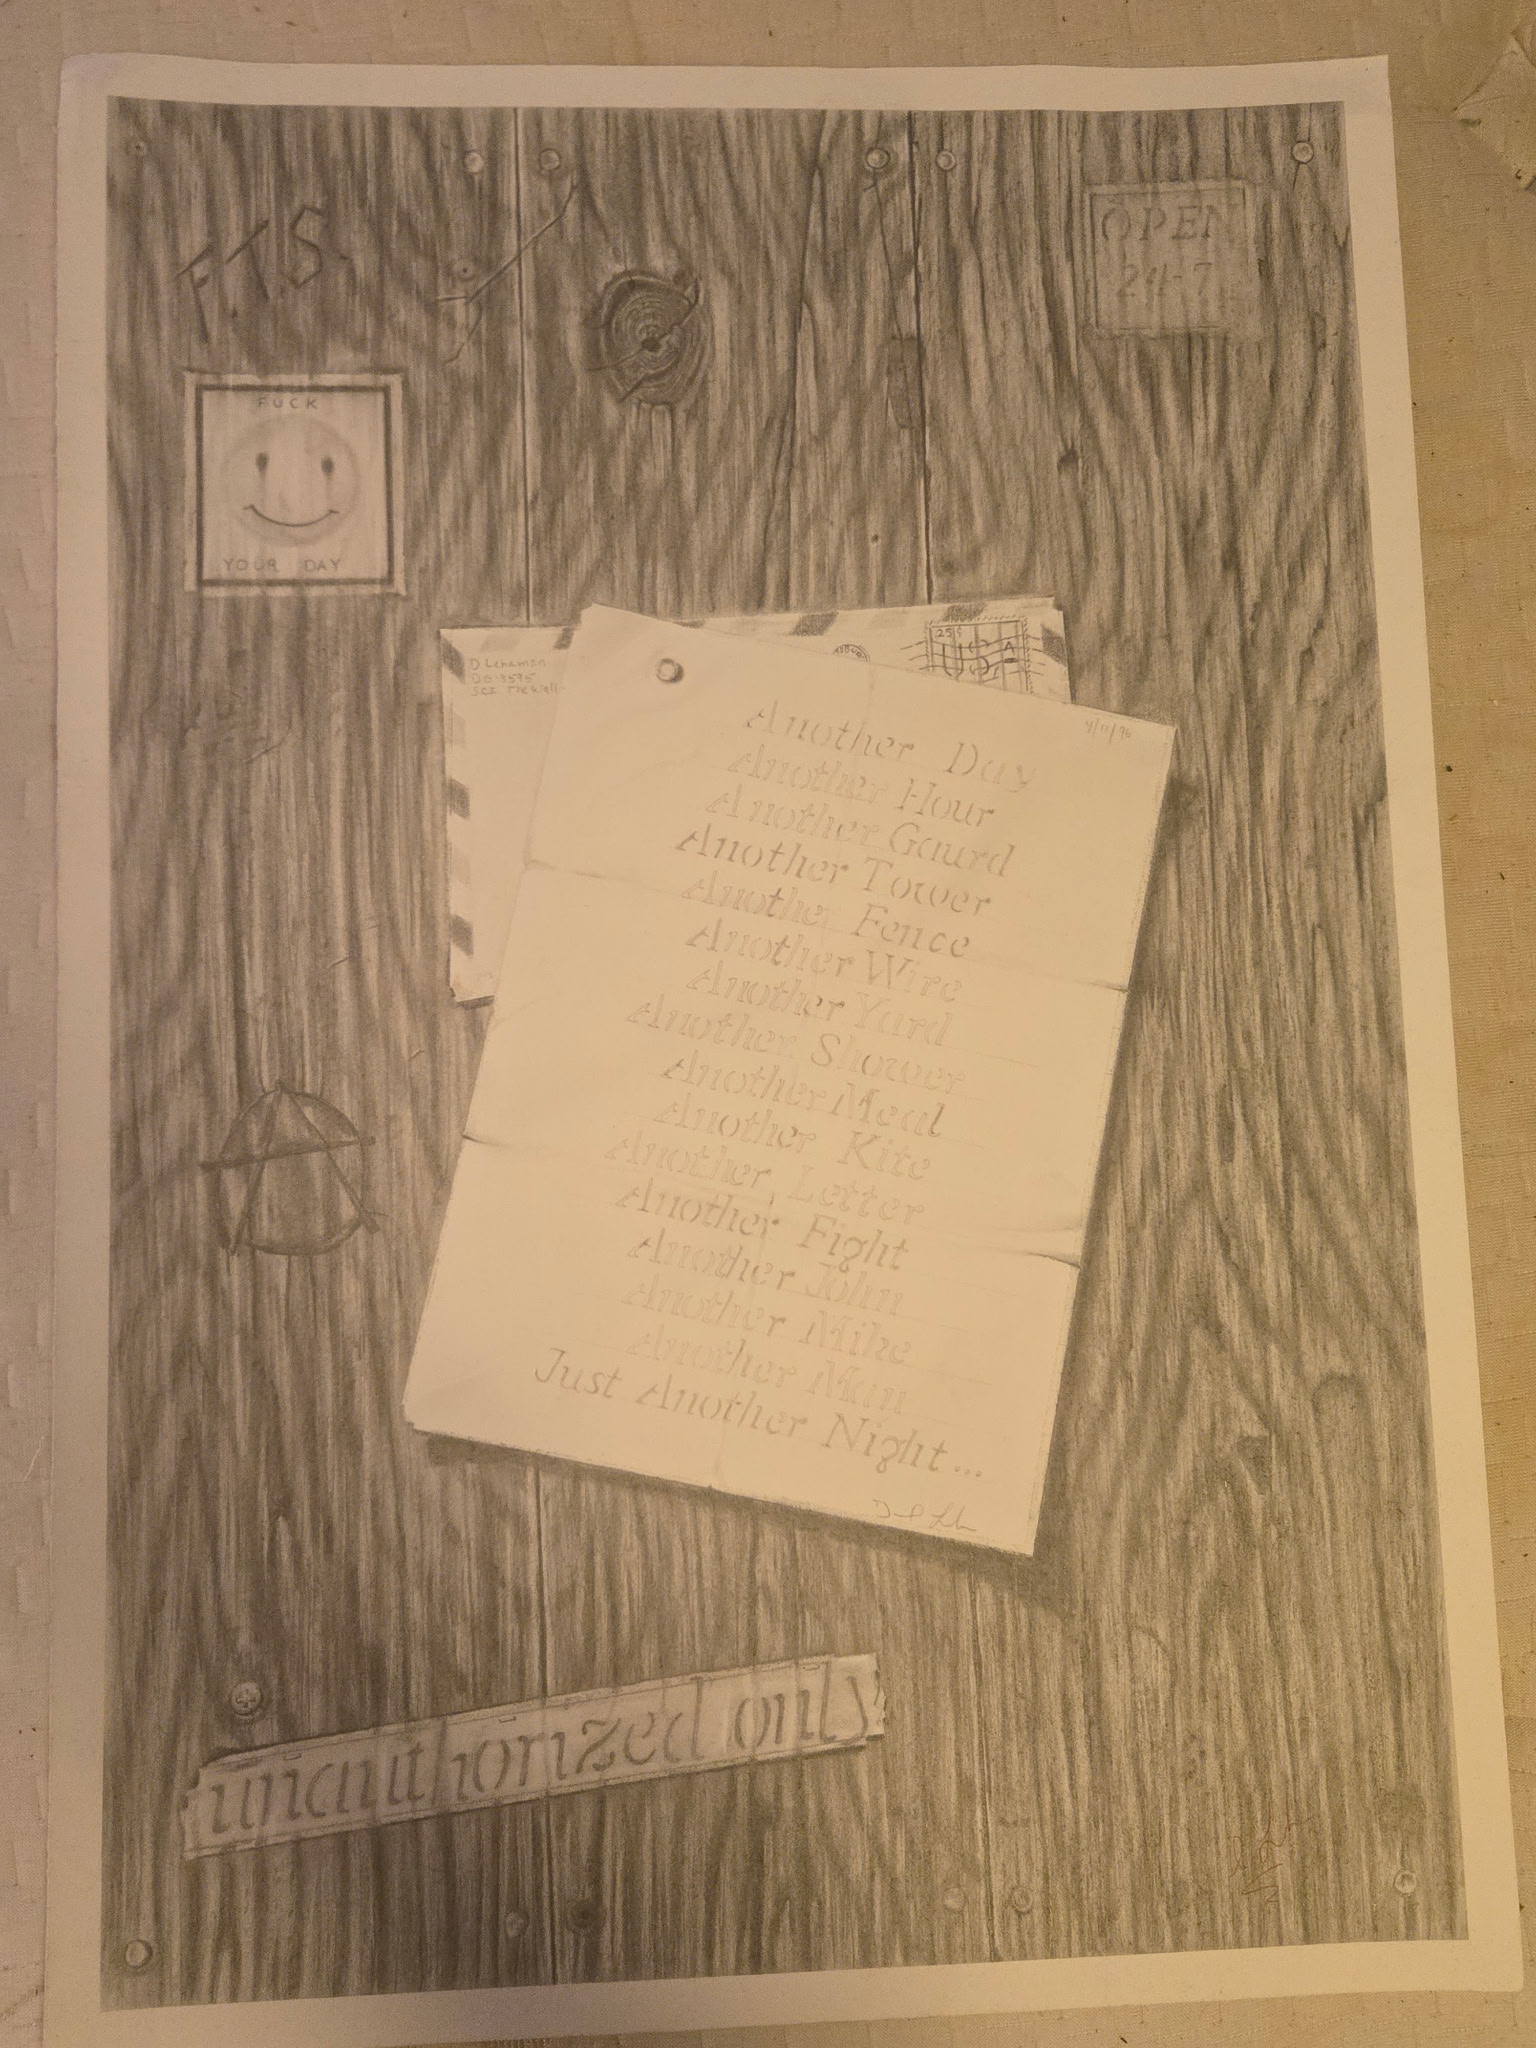 F.T.S.
OPEN
24-7
FUCK
YOUR DAY
25¢
USA
D Lehaman
DG-8595
SCI The Wall
4/11/96
Another Day
Another Hour
Another Gaurd
Another Tower
Another Fence
Another Wire
Another Yard
Another Shower
Another Meal
Another Kite
Another Letter
Another Fight
Another John
Another Mike
Another Man
Just Another Night...
unauthorized only